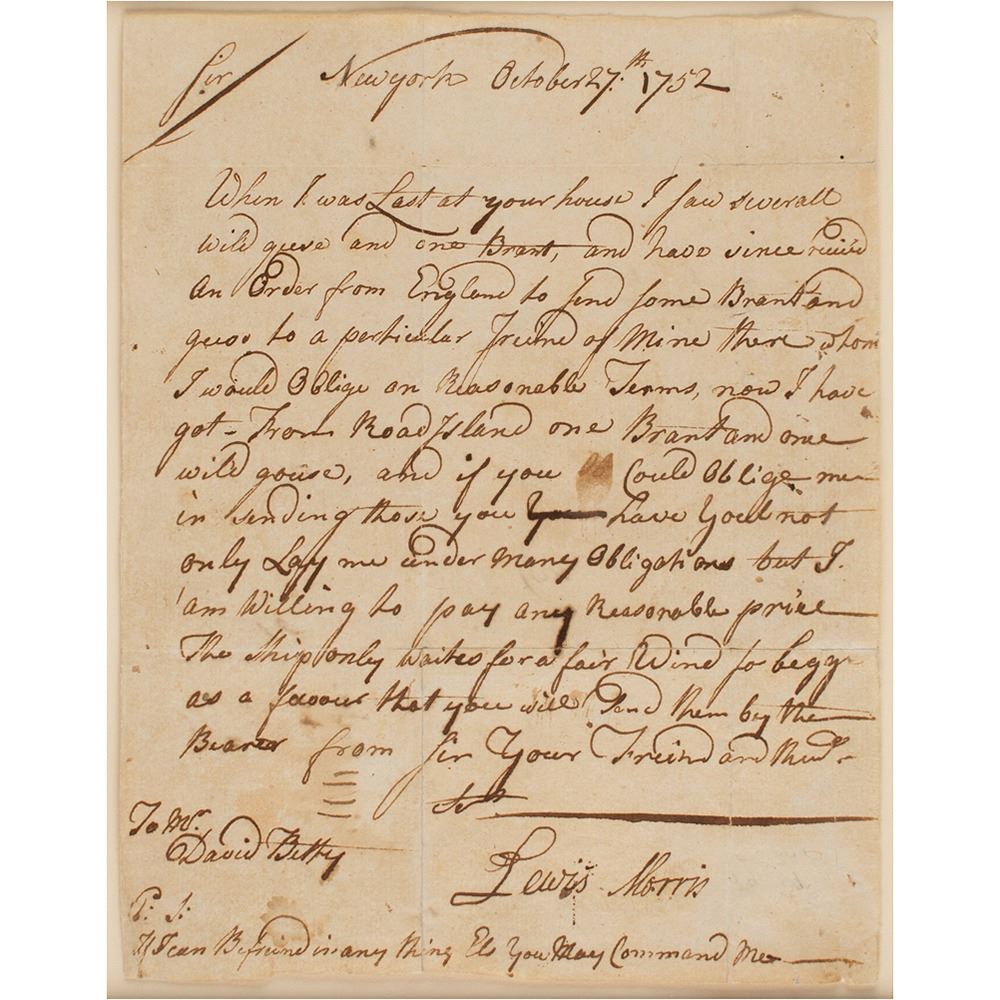 Sir Newyork October 27.th 1752
When I was Last at your house I saw severall
wild geese and one Brant, and have since receivd
an Order from England to send some Brant and
geese to a particular Freind of Mine there whom
I would Oblige on Reasonable Terms, now I have
got - From Road Island one Brant and one
wild gouse, and if you Could Oblige me
in sending those you have Youl not
only Lay me under Many Obligations but I.
am Willing to pay any Reasonable price
The Ship only waites for a fair Wind so begg
as a favour that you will Send them by the
Bearer from Sir Your Freind and Hum.
Sert
To Mr.
David Betty
Lewis Morris
P: S:
If I can Befreind in any thing Els You May Command Me